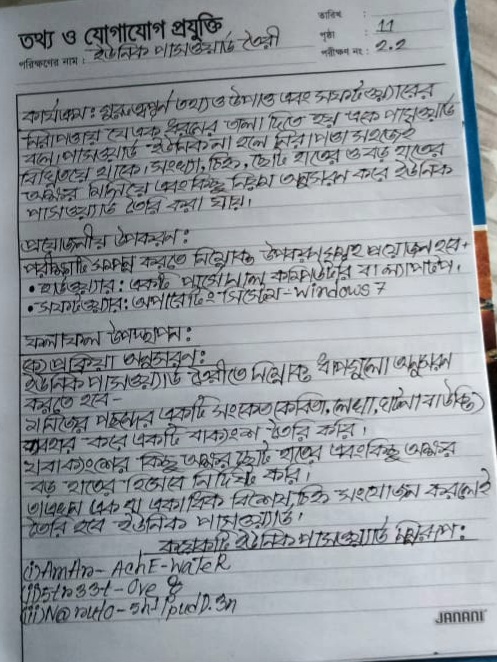 তথ্য ও যোগাযোগ প্রযুক্তি
তারিখ :
পৃষ্ঠা : 11
পরীক্ষণ নং : 2.2
পরিক্ষণের নাম : ইউনিক পাসওয়ার্ড তৈরী
কার্যক্রম: গুরুত্বপূর্ণ তথ্য ও উপাত্ত এবং সফটওয়্যারের
নিরাপত্তায় যে এক ধরনের তালা দিতে হয় একে পাসওয়ার্ড
বলে। পাসওয়ার্ড ইউনিক না হলে নিরাপত্তা সহজেই
বিঘ্নিত হয়ে থাকে। সংখ্যা, চিহ্ন, ছোট হাতের ও বড় হাতের
অক্ষর মিলিয়ে এবং কিছু নিয়ম অনুসরন করে ইউনিক
পাসওয়ার্ড তৈরি করা যায়।
প্রয়োজনীয় উপকরণ:
পরীক্ষাটি সম্পন্ন করতে নিম্নোক্ত উপকরণসমূহ প্রয়োজন হবে÷
• হার্ডওয়্যার: একটি পার্সোনাল কম্পিউটার বা ল্যাপটপ।
• সফটওয়্যার: অপারেটিং সিস্টেম-Windows 7
ফলাফল উপস্থাপন:
(ক) প্রক্রিয়া অনুসরণ:
ইউনিক পাসওয়ার্ড তৈরীতে নিম্নোক্ত ধাপগুলো অনুসরন
করতে হবে-
নিজের পছন্দের একটি সংকেত (কবিতা, লেখা, ঘটনা বা উক্তি)
ব্যবহার করে একটি বাক্যাংশ তৈরি করি।
বাক্যাংশের কিছু অক্ষর ছোট হাতের এবং কিছু অক্ষর
বড় হাতের হিসেবে নির্দিষ্ট করি।
এক বা একাধিক বিশেষ চিহ্ন সংযোজন করলেই
তৈরি হবে ইউনিক পাসওয়ার্ড।
কয়েকটি ইউনিক পাসওয়ার্ড নিরূপ:
(i) AmAn- AchE-WaTeR
(ii) 5tr33t-Ove
(iii) N@ruto-
JANANI